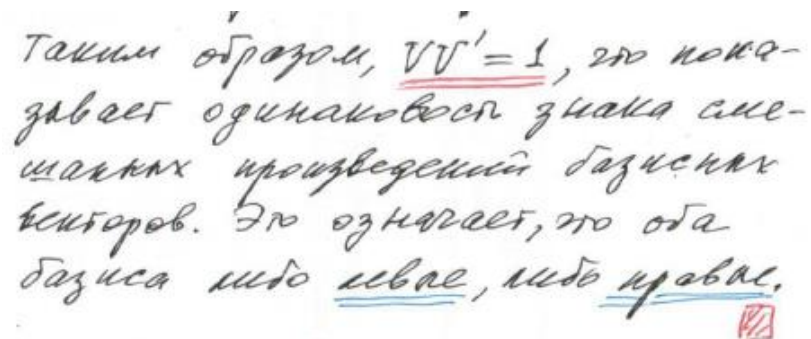 Таким образом, VV' = 1, это пока-
зывает одинаковость знака сме-
шанных произведений базисных
векторов. Это означает, что оба
базиса либо левые, либо правые.